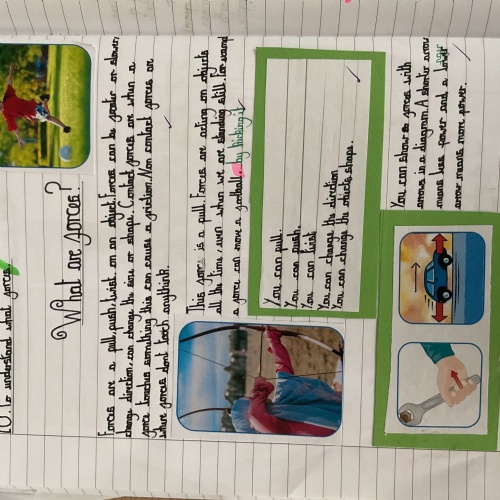 LO: To understand what forces
What are forces?
Forces are a pull, push, twist on an object. Forces can be faster or slower,
change direction, can change the size or shape. Contact forces are when a
force touches something this can cause a friction. Non contact forces are
where forces dont touch anything.
This force is a pull. Forces are acting on objects
all the time, even when we are standing still. For example
a force can move a football by kicking it
You can pull.
You can push.
You can twist
You can change the direction
You can change the objects shape.
You can show forces with
arrows in a diagram. A shorter arrow
means less power and a longer
arrow means more power.